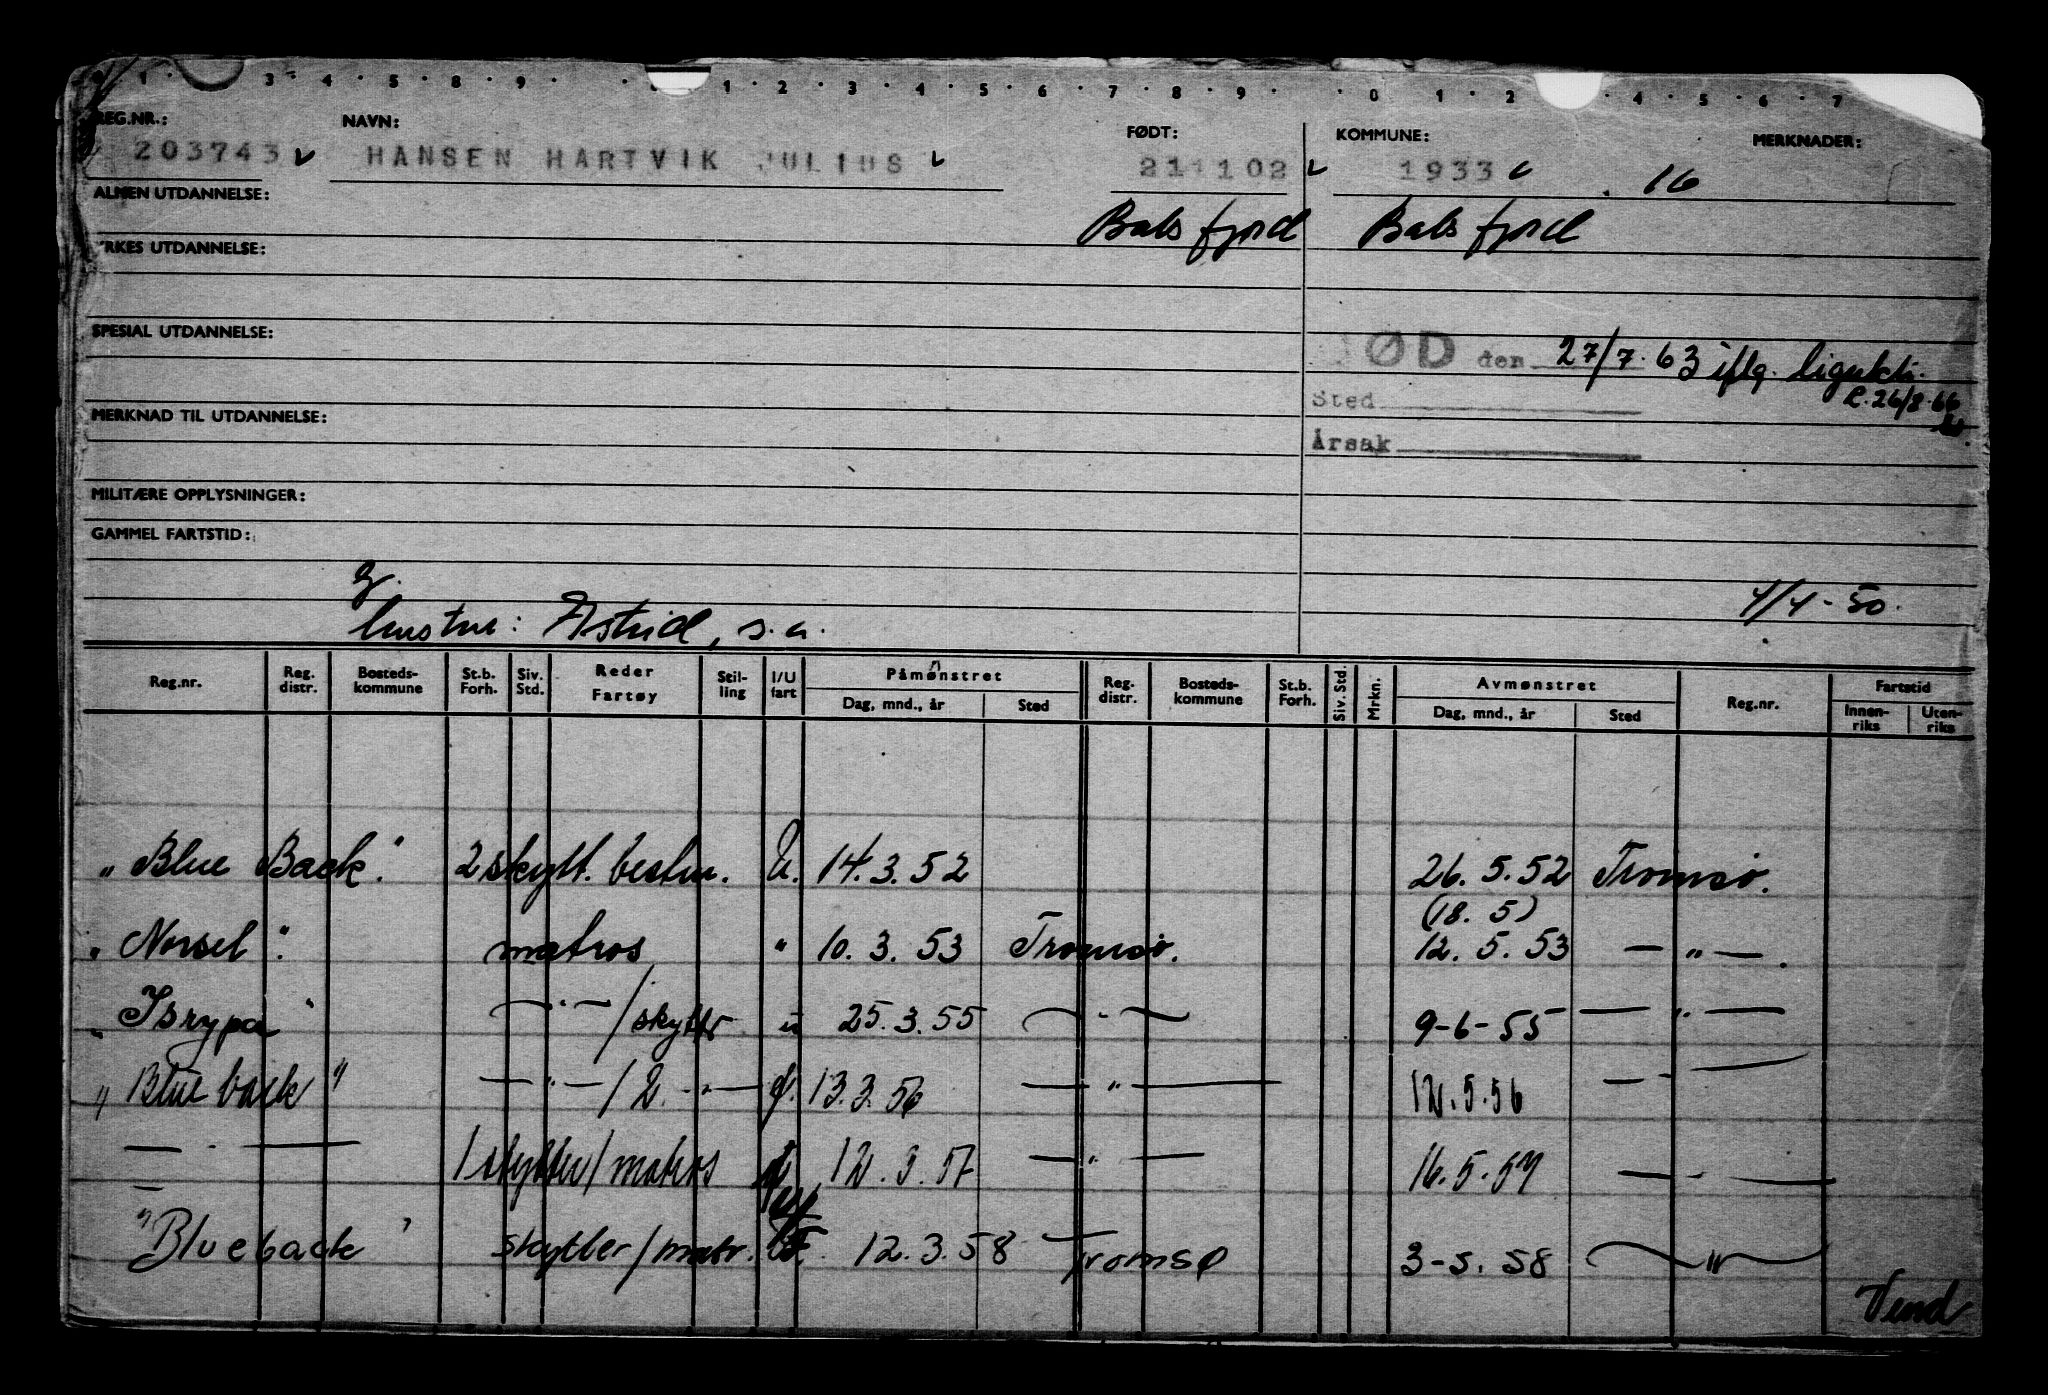 1 3 4 5 8 9 1 2 3 4 5 6 7 8 9 0 1 2 4 5 6 7
REG.NR.: NAVN: FØDT: KOMMUNE: MERKNADER:
203743 HANSEN HARTVIK JULIUS 211102 1933 . 16
ALMEN UTDANNELSE:
Balsfjord Balsfjord
YRKES UTDANNELSE:
SPESIAL UTDANNELSE:
DØD den 27/7.63 iflg. ligukti.
Sted L. 26/8.66
MERKNAD TIL UTDANNELSE:
Årsak
MILITÆRE OPPLYSNINGER:
GAMMEL FARTSTID:
g. 4/4-50.
hustru: Astrid, s.a.
Reg.nr. Reg. distr. Bosteds-kommune St.b. Forh. Siv. Std. Reder Fartøy Stil-ling I/U fart Påmønstret Dag, mnd., år Sted Reg. distr. Bosteds-kommune St.b. Forh. Siv. Std. Mrkn. Avmønstret Dag, mnd., år Sted Reg.nr. Fartstid Innen-riks Uten-riks
"Blue Back". 2 skytt. bestm. U. 14.3.52 26.5.52 Tromsø.
(18.5)
"Norsel". matros " 10.3.53 Tromsø. 12.5.53 — " — .
"Isrypa" — " — /skytter u 25.3.55 — " — 9-6-55 — " —
"Blueback" — " — /2. — " — 13.3.56 — " — 12.5.56 — " —
— " — 1 skytter/matros 12.3.57 — " — 16.5.57 — " —
"Blueback" skytter/matr. 12.3.58 Tromsø 3-5.58 — " —
Vend